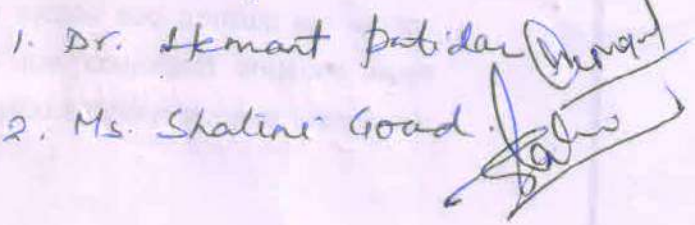 1. Dr. Hemant Patidar
2. Ms. Shalini Goad.